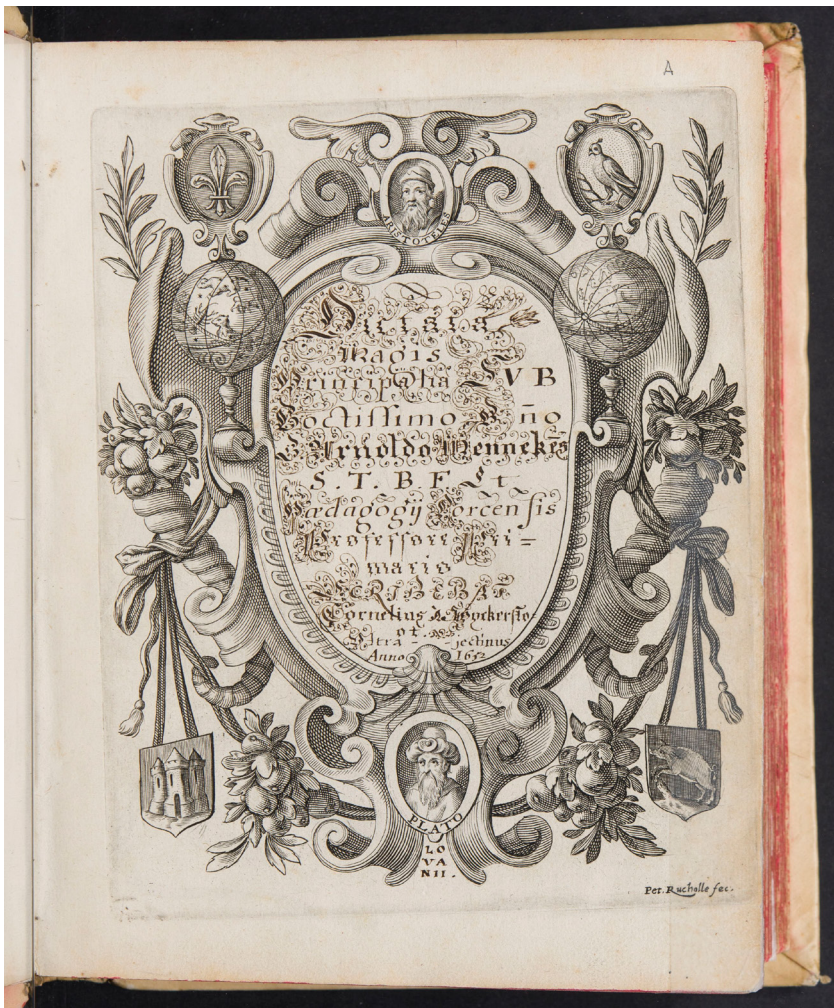 A
ARISTOTELES
Dictata
Magis
Principalia SVB
Doctissimo Dño
D. Arnoldo
S. T. B. F. Et
Pædagogij Porcensis
Professore Pri=
mario
SCRIBEBAT
Cornelius de Wyckersło-
ot
Vltra - jectinus
Anno 1652
PLATO
LO
VA
NII.
Pet. Rucholle fec.